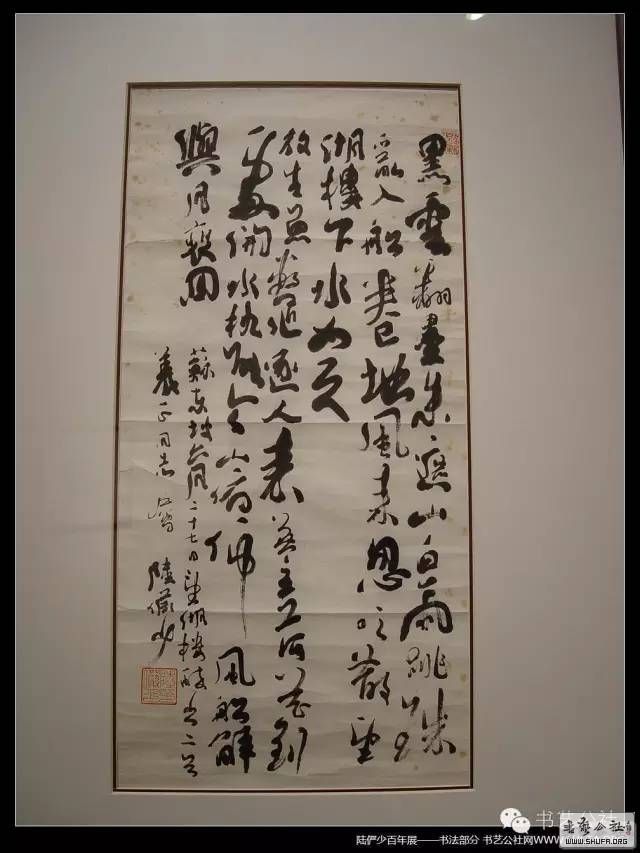 黑雲翻墨未遮山白雨跳珠
亂入船卷地風來忽吹散望
湖樓下水如天
放生魚鱉逐人來無主荷花到
處開水枕能令山俯仰風船解
與月裵回
蘇東坡六月二十七日望湖樓醉書二首
義正同志屬 陸儼少
书艺公社
陆俨少百年展——书法部分 书艺公社网WWW
書藝公社
WWW.SHUFA.ORG